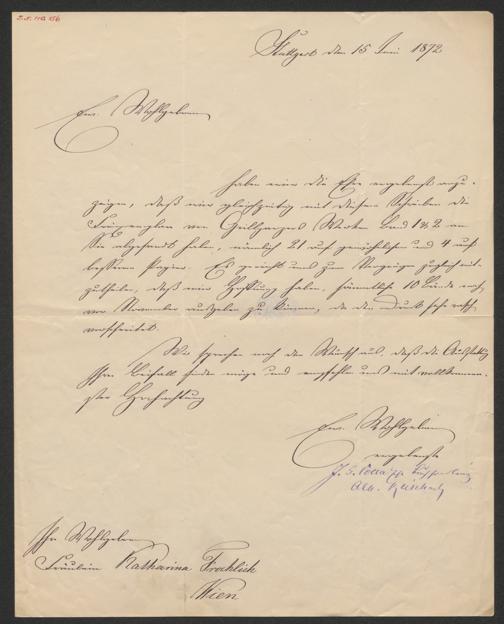 Stuttgart den 15 Juni 1872
Euer Wohlgeboren
haben wir die Ehre ergebenst anzu-
zeigen, daß wir gleichzeitig mit diesem Schreiben die
Freiexemplare von Grillparzers Werken Band 1 & 2 an
Sie abgesandt haben, nämlich 21 auf gewöhnlichem und 4 auf
besserem Papier. Es gereicht uns zum Vergnügen zugleich mit-
zutheilen, daß wir Hoffnung haben, sämmtliche 10 Bände noch
vor November ausgeben zu können, da der Druck sehr rasch
voranschreitet.
Wir sprechen noch den Wunsch aus, daß die Ausstattung
Ihren Beifall finden möge und empfehlen uns mit vollkommen-
ster Hochachtung
Euer Wohlgeboren
ergebenste
J. G. Cotta'sche Buchhandlung
Ihro Wohlgeboren
Fräulein Katharina Froehlich
Wien